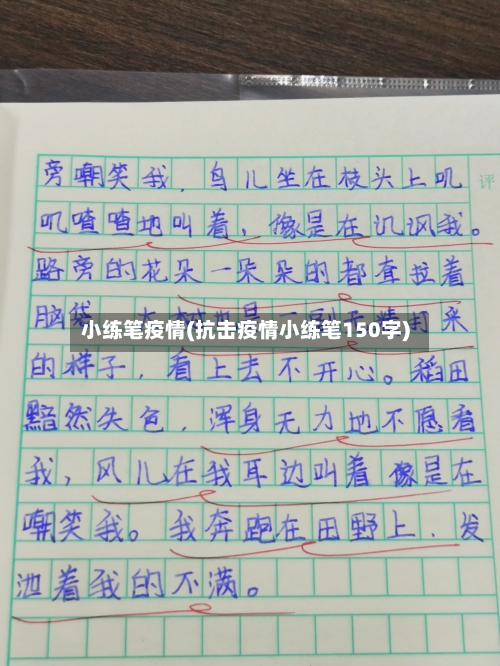 旁嘲笑我,鸟儿坐在枝头上叽
评
叽喳喳地叫着,像是在讥讽我。
路旁的花朵一朵朵的都耷拉着
小练笔疫情(抗击疫情小练笔150字)
的样子,看上去不开心。稻田
黯然失色,浑身无力地不愿看
我,风儿在我耳边叫着像是在
嘲笑我。我奔跑在田野上,发
泄着我的不满。